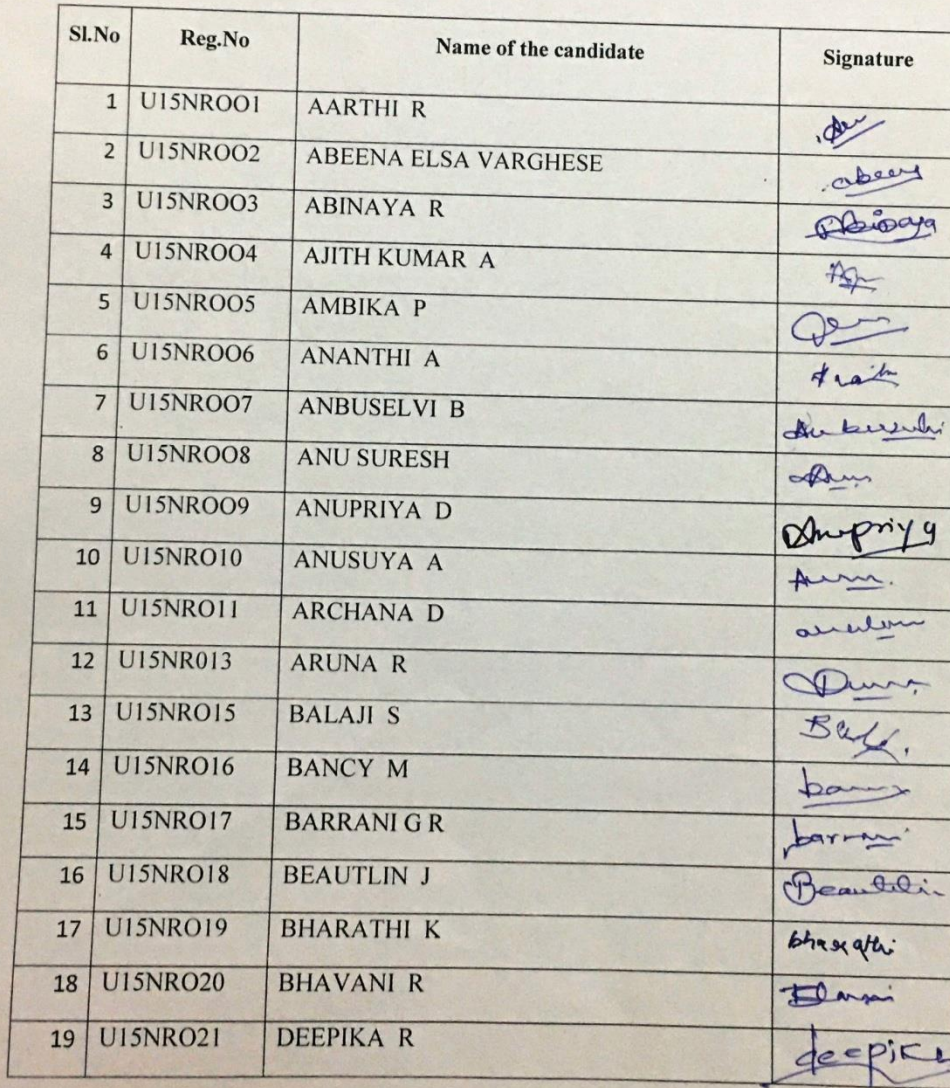 Sl.No Reg.No Name of the candidate Signature
1 U15NROO1 AARTHI R
2 U15NROO2 ABEENA ELSA VARGHESE
3 U15NROO3 ABINAYA R Abinaya
4 U15NROO4 AJITH KUMAR A
5 U15NROO5 AMBIKA P
6 U15NROO6 ANANTHI A
7 U15NROO7 ANBUSELVI B
8 U15NROO8 ANU SURESH
9 U15NROO9 ANUPRIYA D Anupriya
10 U15NRO10 ANUSUYA A
11 U15NRO11 ARCHANA D
12 U15NR013 ARUNA R
13 U15NRO15 BALAJI S
14 U15NRO16 BANCY M
15 U15NRO17 BARRANI G R barrani
16 U15NRO18 BEAUTLIN J Beautlin
17 U15NRO19 BHARATHI K bharathi
18 U15NRO20 BHAVANI R
19 U15NRO21 DEEPIKA R deepika